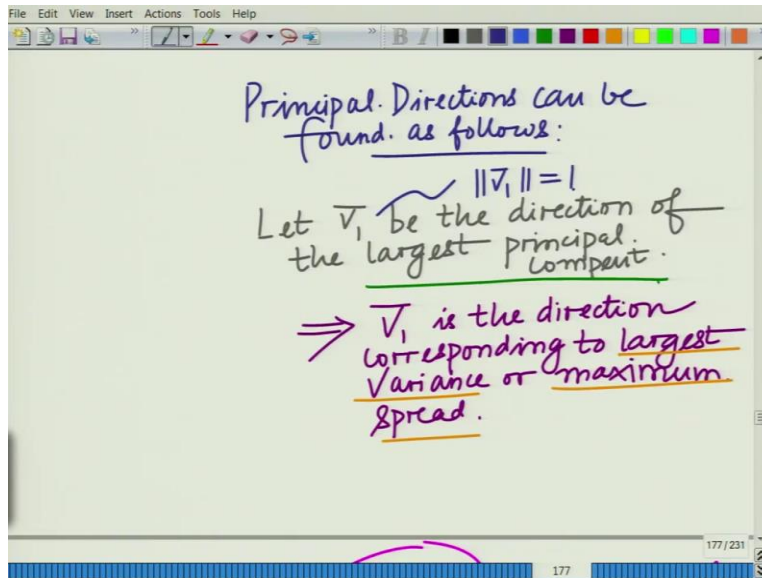 File Edit View Insert Actions Tools Help
Principal. Directions can be
found. as follows:
||v̅₁|| = 1
Let v̅₁ be the direction of
the largest principal.
compent.
⇒ v̅₁ is the direction
corresponding to largest
Variance or maximum.
spread.
177/231
177